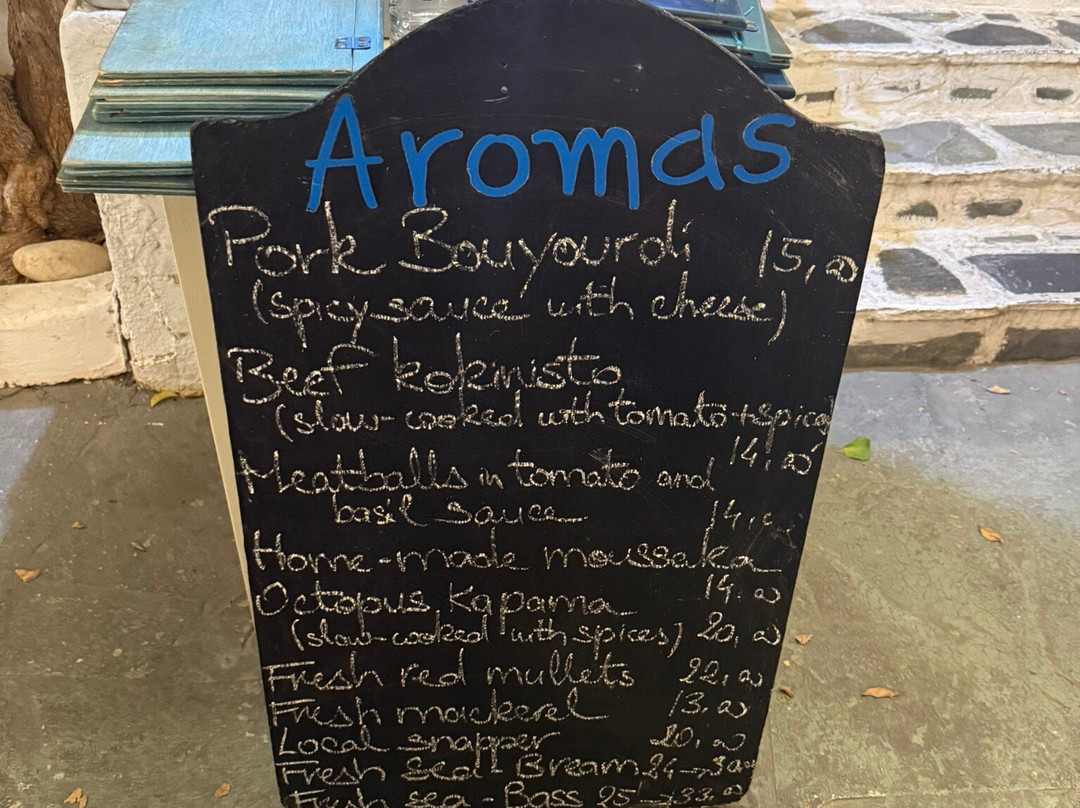 Aromas
Pork Bouyourdi 15,00
(spicy sauce with cheese)
Beef kokinisto
(slow-cooked with tomato + spices)
14,00
Meatballs in tomato and
basil sauce 14,00
Home-made moussaka
14.00
Octopus Kapama
(slow-cooked with spices) 20,00
Fresh red mullets 22,00
Fresh mackerel 13.00
Local snapper 20,00
Fresh sea-Bream 24→
Fresh sea-Bass 25→33.00